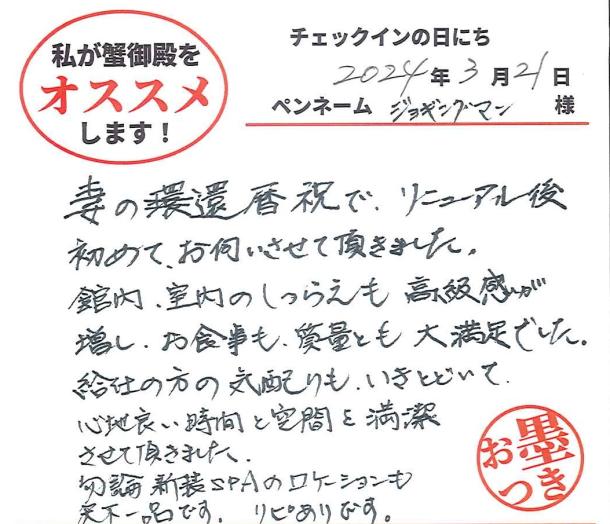 私が蟹御殿を
オススメ
します！
チェックインの日にち
2024年3月21日
ペンネーム ジョギングマン 様
妻の還暦祝で、リニューアル後
初めて、お伺いさせて頂きました。
館内、室内のしつらえも高級感が
増し、お食事も、質量とも大満足でした。
給仕の方の気配りも、いきとどいて、
心地良い時間と空間を満潔
させて頂きました。
勿論新装SPAのロケーションも
天下一品です。リピありです。
お墨
つき